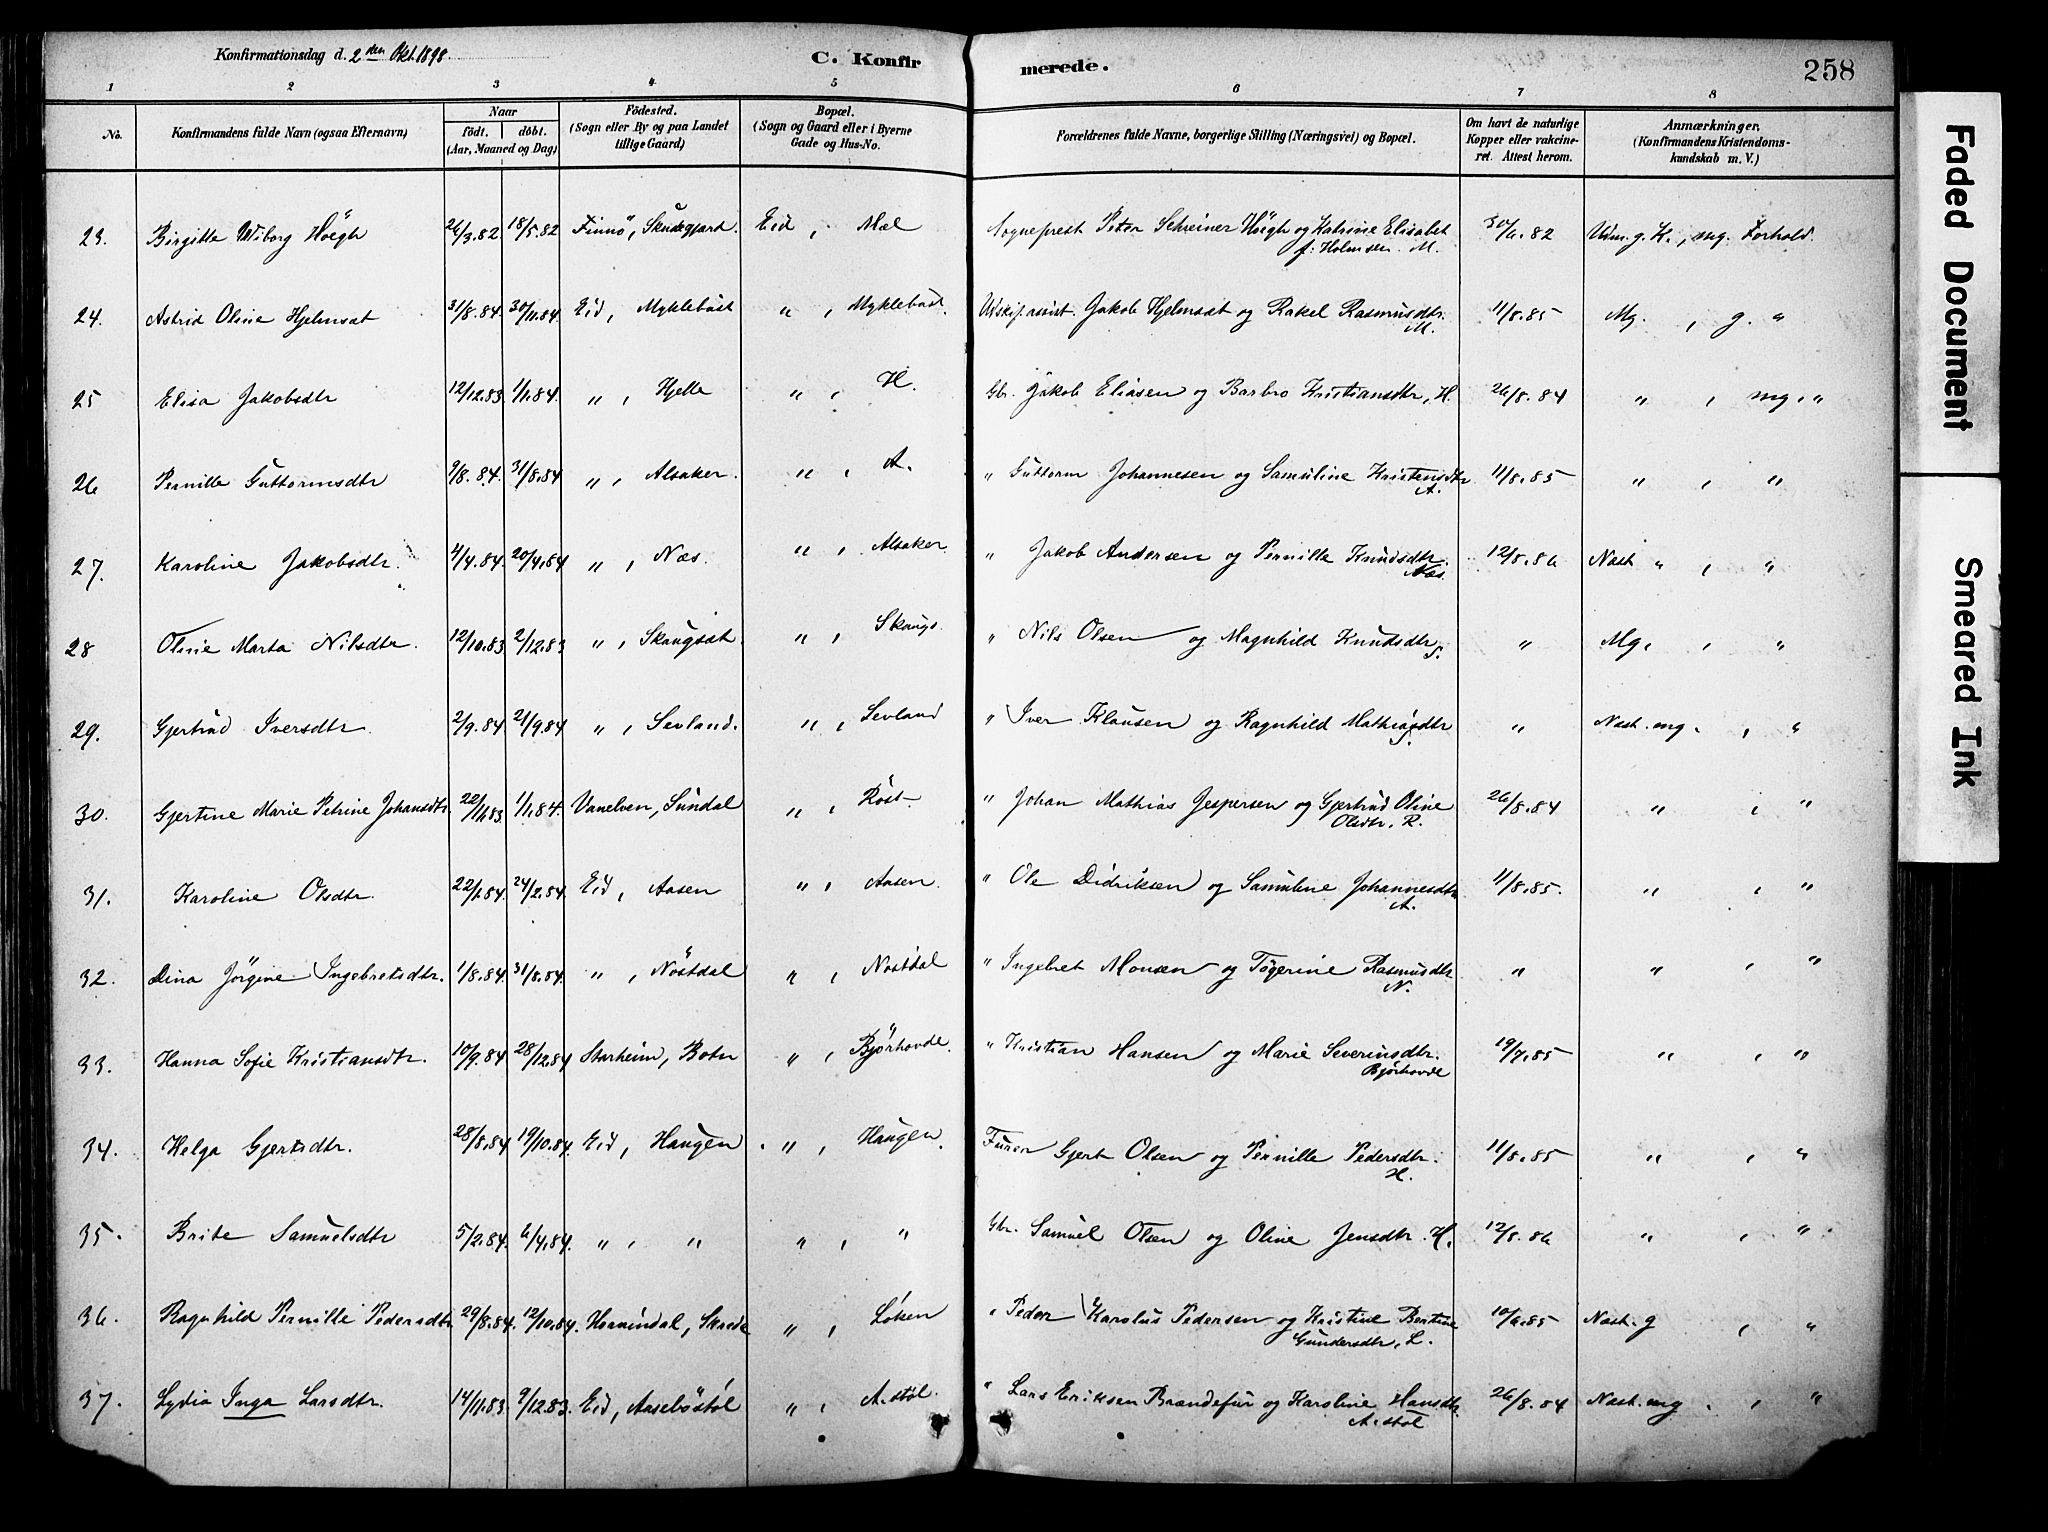 Konfirmationsdag d. 2den Okt. 1898. C. Konfirmerede. 258
1 2 3 4 5 6 7 8
No. Konfirmandens fulde Navn (ogsaa Efternavn) Naar født. døbt. (Aar, Maaned og Dag) Fødested. (Sogn eller By og paa Landet tillige Gaard) Bopæl. (Sogn og Gaard eller i Byerne Gade og Hus-No. Forældrenes fulde Navne, borgerlige Stilling (Næringsvei) og Bopæl. Om havt de naturlige Kopper eller vakcineret. Attest herom. Anmærkninger. (Konfirmandens Kristendomskundskab m. V.)
23. Birgitte Wiborg Höegh 26/3.82. 18/5.82 Finnö, Eid, Mæl Sogneprest Peter Schreiner Höegh og Katrine Elisabet f: Holmsen. M. 30/6.82 Udm. g. K., mg. Forhold.
24. Astrid Oline Hjelmsæt 31/8.84. 30/11.84. Eid, Myklebust " , Myklebust. Udskif.assist. Jakob Hjelmsæt og Rakel Rasmusdtr. M. 11/8.85 Mg. , g. "
25 Elisa Jakobsdtr 12/12.83. 1/1.84. " , Hjelle " , H. Gbr. Jakob Eliasen og Barbro Kristiansdtr, H. 26/8.84 " , mg. "
26 Pernille Guttormsdtr 9/8.84. 31/8.84 " , Alsaker. " , A. " Guttorm Johannesen og Samuline Kristensdtr A. 11/8.85 " , "
27. Karoline Jakobsdtr. 4/4.84. 20/4.84 " , Næs. " , Alsaker " Jakob Andersen og Pernille Knudsdtr. Næs. 12/8.86 Næst " , "
28 Oline Marta Nilsdtr. 12/10.83 2/12.83 " , Skaugsæt. " , Skaugs. " Nils Olsen og Magnhild Knudsdtr S. " Mg. , "
29. Gjertrud Iversdtr. 2/9.84 21/9.84 " , Sevland. " , Sevland " Iver Klausen og Ragnhild Mathiasdtr S. " Næst. mg. , "
30. Gjertine Marie Petrine Johansdtr. 22/11.83. 1/1.84. Vanelven, Sundal " , Röst. " Johan Mathias Jespersen og Gjertrud Oline Olsdtr, R. 26/8.84 " , "
31. Karoline Olsdtr. 22/1.84. 24/2.84. Eid, Aasen " , Aasen. " Ole Didriksen og Samuline Johannesdtr A. 11/8.85. " , "
32. Dina Jörgine Ingebretsdtr. 1/8.84. 31/8.84. " , Nöstdal " , Nöstdal " Ingebret Monsen og Tögerine Rasmusdtr N. " " , "
33. Hanna Sofie Kristiansdtr. 10/9.84 28/12.84 Starheim, Botn " , Bjørhovde. " Kristian Hansen og Marie Severinsdtr. Bjørhovde 19/7.85 " , "
34. Helga Gjertsdtr. 28/8.84 19/10.84. Eid, Haugen " , Haugen. Furer Gjert Olsen og Pernille Pedersdtr. H. 11/8.85 " , "
35. Brite Samuelsdtr 5/2.84. 6/4.84. " , " " , " Gbr. Samuel Olsen og Oline Jensdtr. H. 12/8.86 " , "
36. Ragnhild Pernille Pedersdtr. 29/8.84. 12/10.84. Hornindal, Skrede " , Løken " Peder Karolus Pedersen og Kristine Bertine Gundersdtr, L. 10/6.85 Næst. g , "
37. Lydia Inga Larsdtr. 14/11.83. 9/12.83. Eid, Aasebøstøl " , A.støl. " Lars Eriksen Brandefur og Karoline Hansdtr. A.støl 26/8.84 Næst. mg. , "
Faded Document
Smeared Ink